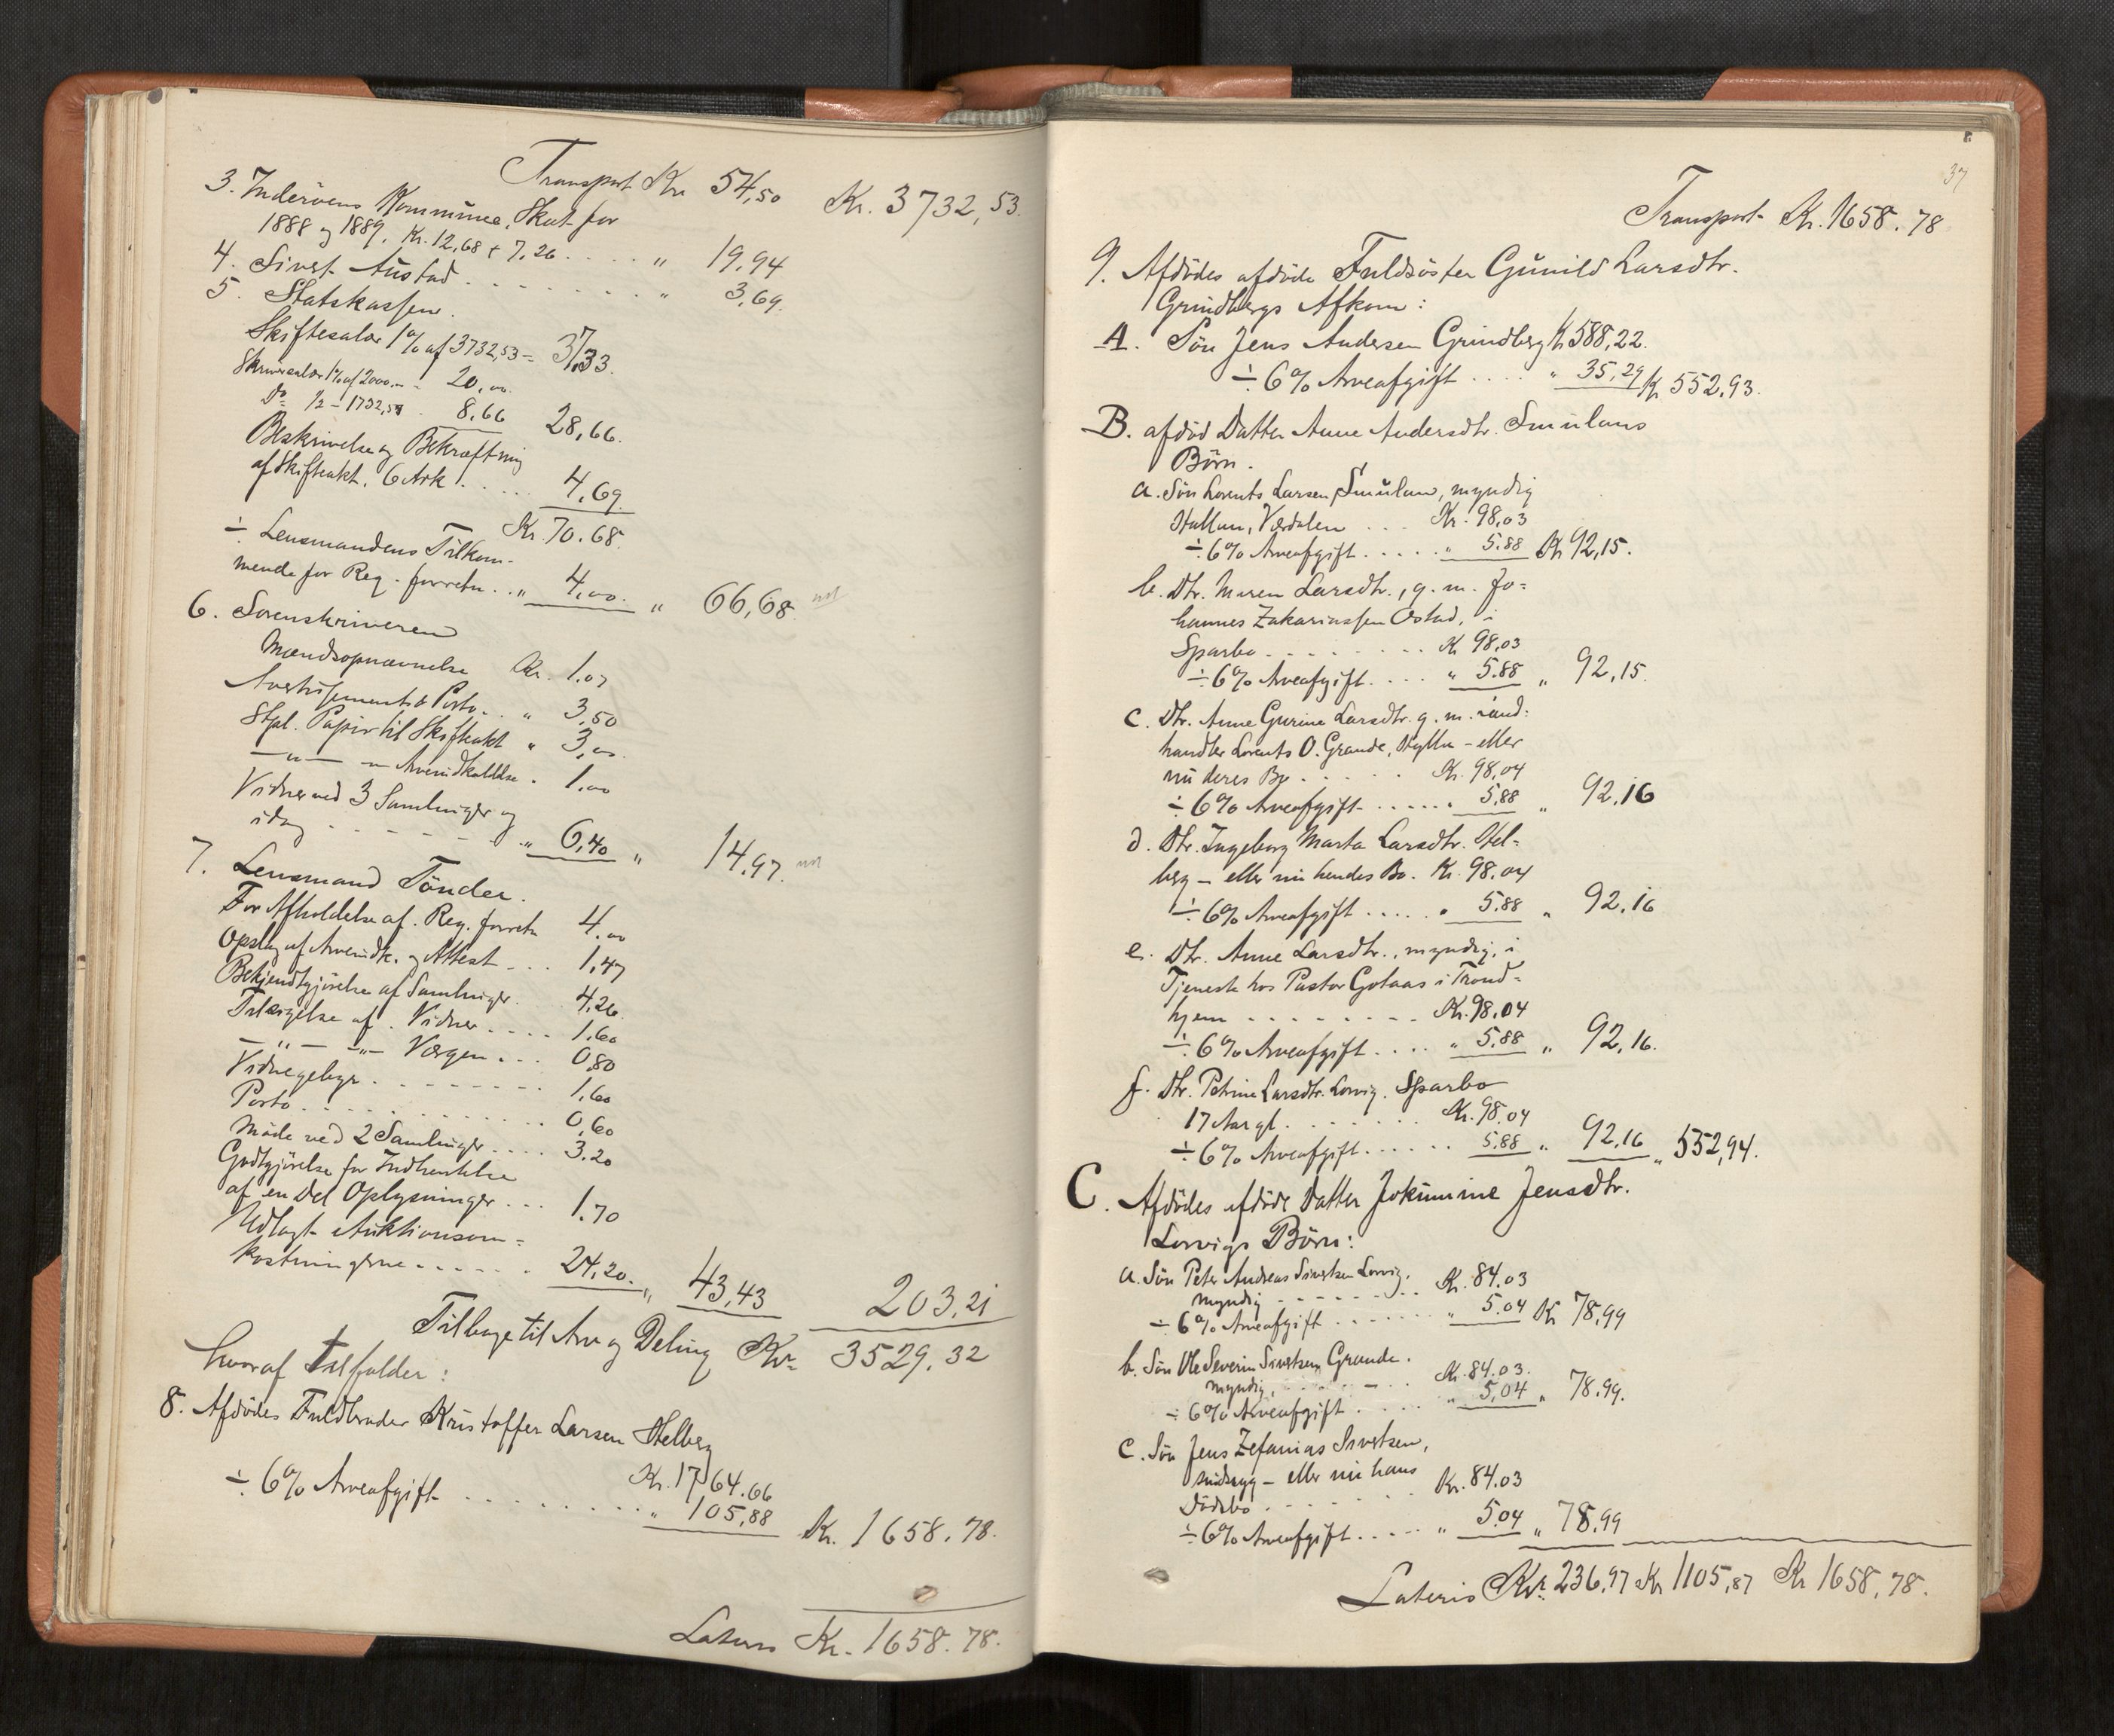 Transport Kr. 54,50 Kr. 3732,53.
3. Inderöens Kommune, Skat for
1888 og 1889, Kr. 12,68 + 7,26 .... " 19.94
4. Sivert Austad ........ " 3,69.
5. Statskassen.
Skiftesalær 1% af 3732,53 = 37,33.
Skriversalær 1% af 2000.- - 20,00
Do 1/2 - 1732,53 . 8,66 28,66.
Beskrivelse og Bekræftning
af Skifteakt. 6 Ark ..... 4,69.
Kr. 70.68.
÷ Lensmandens Tilkom-
mende for Reg.-forretn. .. " 4,00. " 66,68.
6. Sorenskriveren
Mændsopnævnelse Kr. 1.07
Avertissement & Porto .. " 3,50
Stpl. Papir til Skifteakt " 3,00.
—"— — Arveindkaldelse . 1,00
Vidner ved 3 Samlinger og
idag ....... " 6,40 " 14,97.
7. Lensmand Tönder.
For Afholdelse af Reg. forretn 4.00
Opslag af Arveindk. og Attest ... 1,47
Bekjendtgjörelse af Samlinger. 4,26.
Tilsigelse af Vidner .... 1,60
—"— —"— Værgen ... 0,80
Vidnegebyr ........ 1,60
Porto ........... 0,60
Möde ved 2 Samlinger .... 3.20
Godtgjörelse for Indhentelse
af en Del Oplysninger ... 1.70
Udlagt Auktionsom-
kostningerne ...... 24,20. " 43,43 203,21
Tilbage til Arv og Deling Kr. 3529.32
hvoraf tilfalder:
8. Afdödes Fuldbroder Kristoffer Larsen Helberg
Kr. 1764.66
÷ 6% Arveafgift ......... " 105,88 Kr. 1658.78.
Lateris Kr. 1658.78.
37
Transport Kr. 1658.78
9. Afdödes afdöde Fuldsöster Gunild Larsdtr.
Grindbergs Afkom:
A. Sön Jens Andersen Grindberg Kr 588,22.
÷ 6% Arveafgift .... " 35,29 Kr 552,93.
B. afdöd Datter Anne Andersdtr. Smulans
Börn.
a. Sön Lorents Larsen Smulan, myndig
Hallan, Værdalen ... Kr. 98,03
÷ 6% Arveafgift ..... " 5.88 Kr 92,15.
b. Dtr. Maren Larsdtr., g. m. Jo-
hannes Zakariassen Ostad, i
Sparbo ........ Kr 98,03
÷ 6% Arveafgift .... " 5.88 " 92,15.
c. Dtr. Anne Gurine Larsdtr. g. m.
handler Lorents O. Grande, - eller
nu deres Bo ..... Kr. 98,04
÷ 6% Arveafgift ...... 5,88 " 92,16
d. Dtr. Ingeborg Marta Larsdtr. Hel-
berg - eller nu hendes Bo. Kr. 98.04
÷ 6% Arveafgift ..... " 5.88 " 92,16
e. Dtr. Anne Larsdtr., myndig, i
Tjeneste hos Pastor Gotaas i Trond-
hjem ........ Kr. 98,04
÷ 6% Arveafgift .... " 5.88 " 92,16.
f. Dtr. Petrine Larsdtr. Lorvig. Sparbo
17 Aar gl. ...... Kr. 98,04
÷ 6% Arveafgift ...... 5.88 " 92,16 " 552,94.
C. Afdödes afdöde Datter Jokumine Jensdtr.
Lorvigs Börn:
a. Sön Peter Andreas Sivertsen Lorvig,
myndig ........ Kr. 84.03
÷ 6% Arveafgift ....... " 5.04 Kr 78,99
b. Sön Ole Severin Sivertsen Grande.
myndig, ..... Kr. 84.03.
÷ 6% Arveafgift .... " 5,04 " 78.99.
c. Sön Jens Zefanias Sivertsen,
sindssyg - eller nu hans
Dödsbo ...... Kr. 84.03
÷ 6% Arveafgift .... " 5.04 " 78.99
Lateris Kr. 236,97 Kr 1105,87 Kr 1658,78.